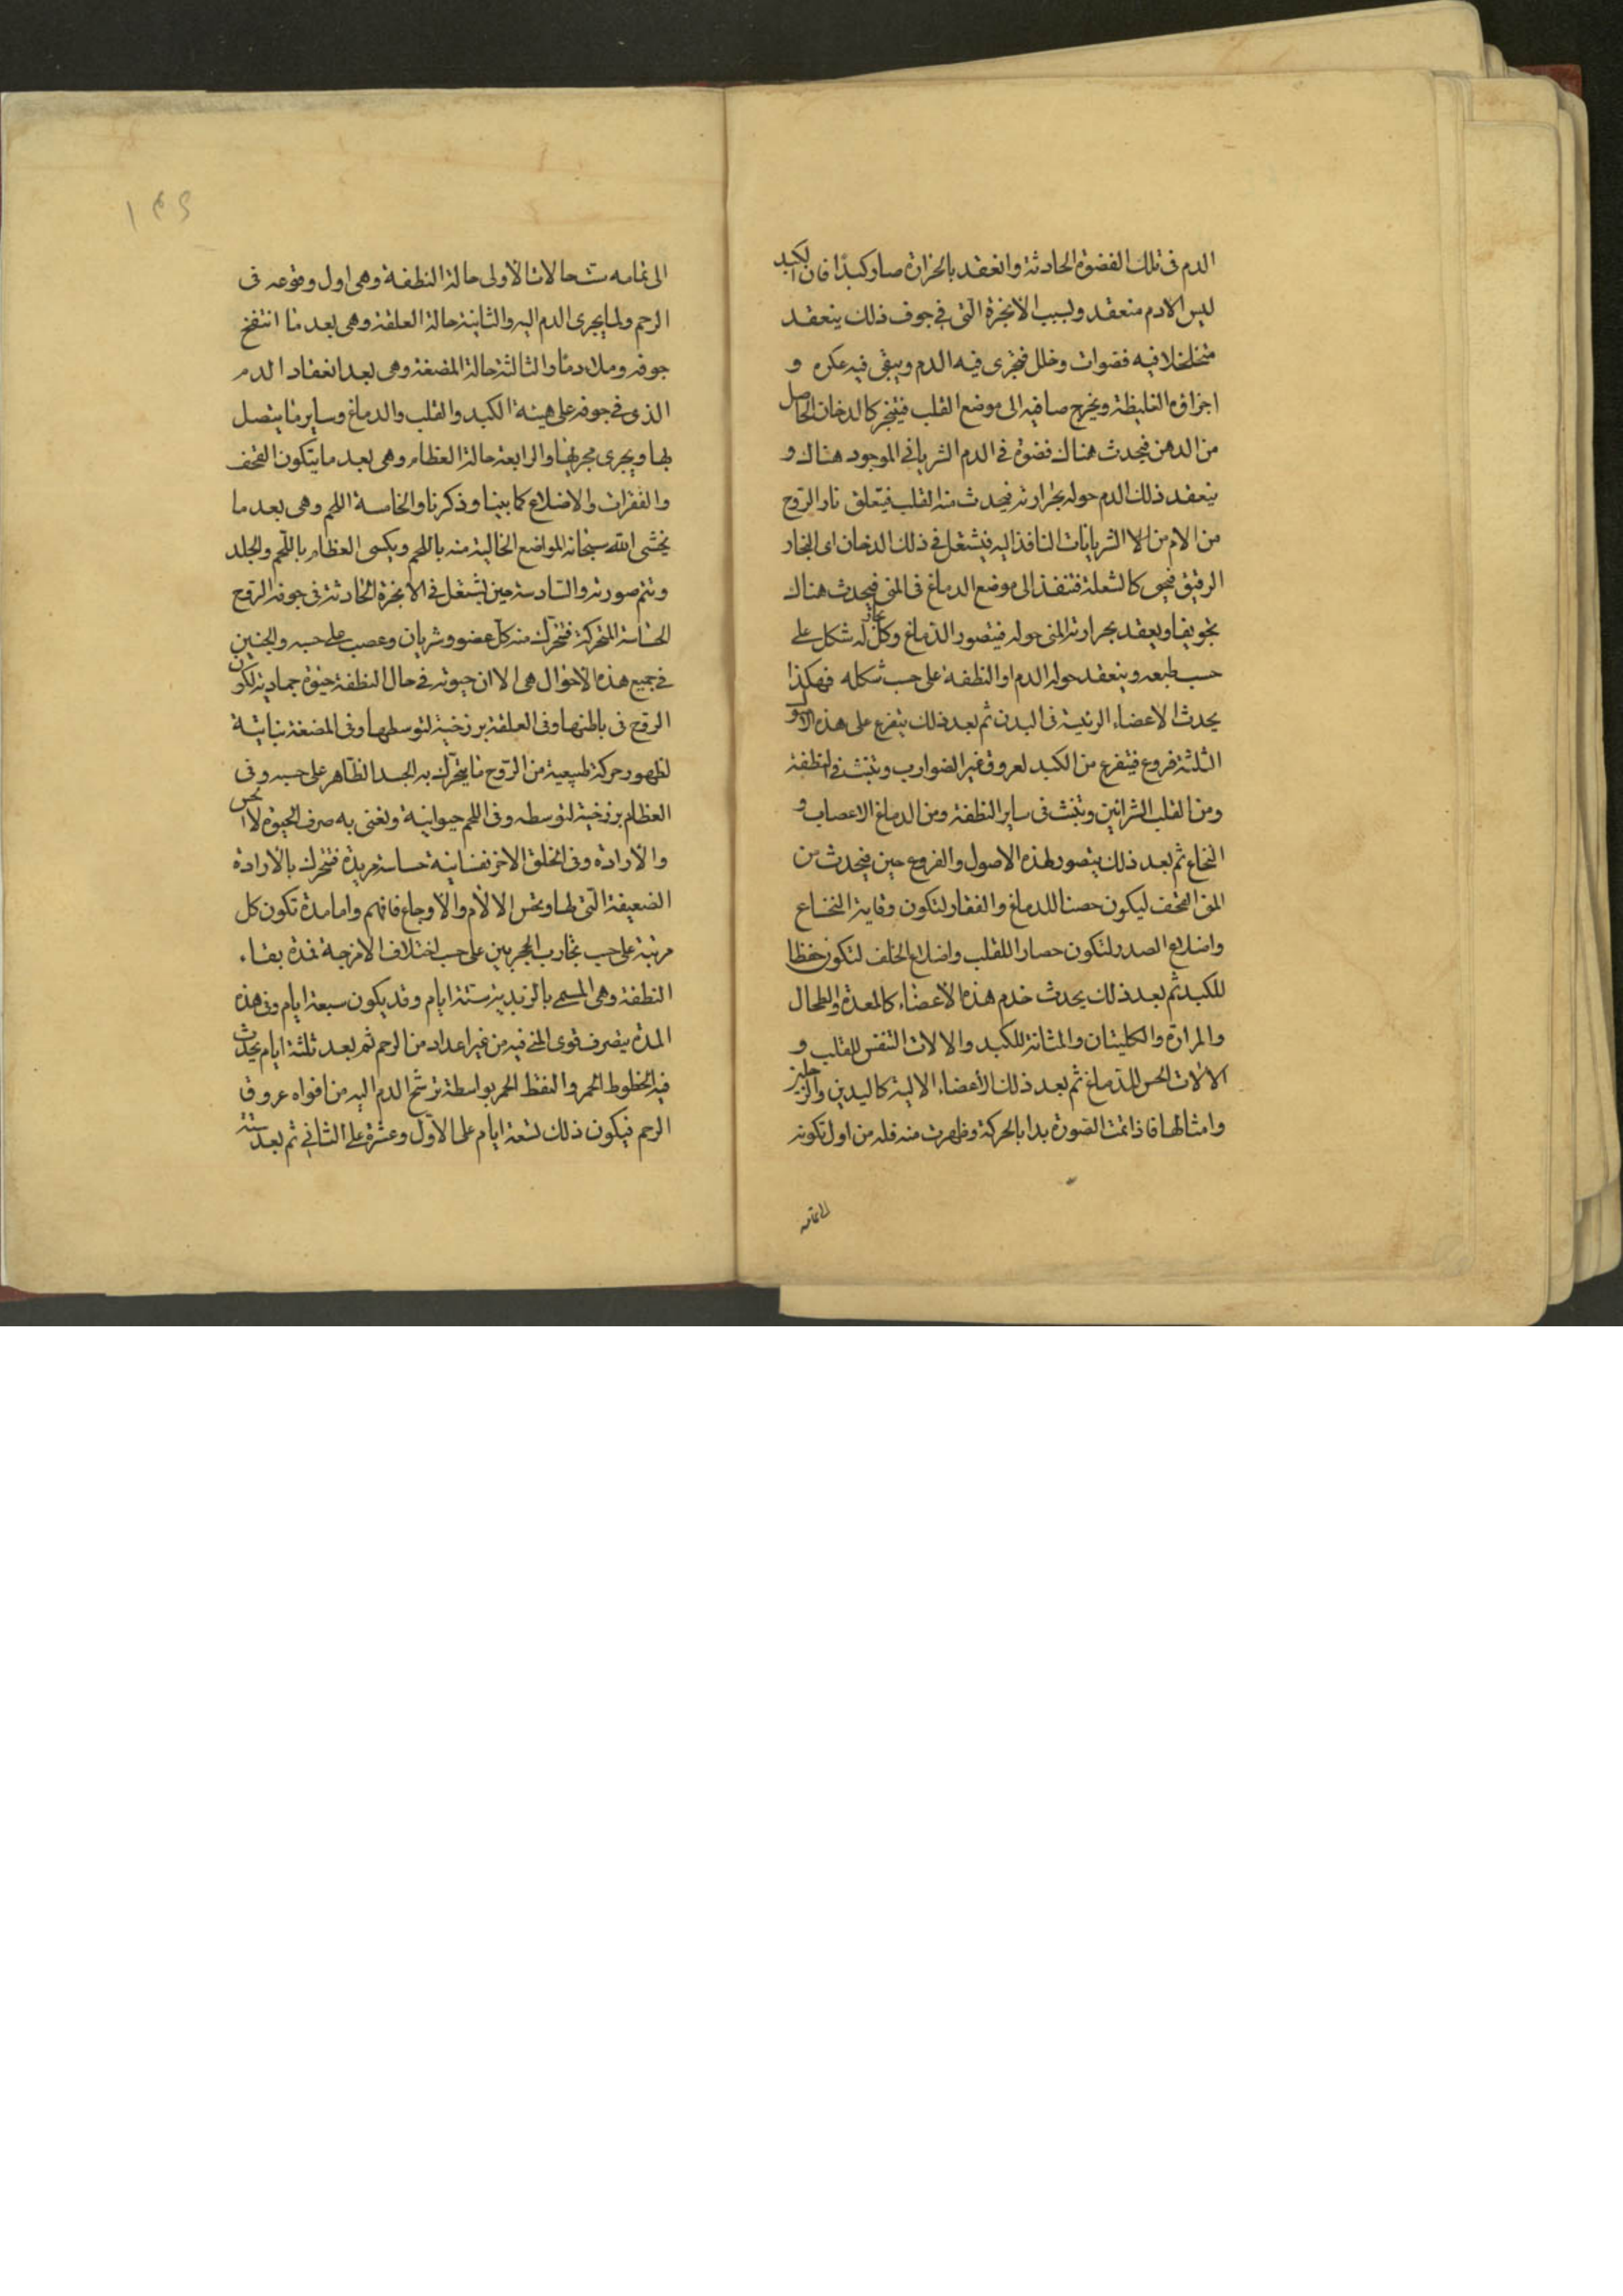 الدم فى تلك الفضوة الحادثة وانعقد بالحرارة صار كبدًا فان الكبد
ليس الا دم منعقد ولسبب الابخرة التى فى جوف ذلك ينعقد
متخلخلا فيه فضوات وخلل فيجرى فيه الدم ويبقى فيه عكره و
اجزاؤه الغليظة ويخرج صافيه الى موضع القلب فيتبخر كالدخان الحاصل
من الدهن فيحدث هناك فضوة فى الدم الشريانى الموجود هناك و
ينعقد ذلك الدم حوله بحرارته فيحدث منه القلب فيتعلق نار الروح
من الام من الشريانات النافذ اليه فيشتعل فى ذلك الدخان اى البخار
الرقيق فيحيى كالشعلة فتنفذ الى موضع الدماغ فى المنى فيحدث هناك
تجويفا ويعقد بحرارته المنى حوله فيتصور الدماغ وكل له شكل على
حسب طبعه وينعقد حوله الدم او النطفة على حسب شكله فهكذا
يحدث الاعضاء الرئيسة فى البدن ثم بعد ذلك يتفرع على هذه
الثلثة فروع فيتفرع من الكبد لعروق غير الضوارب وتنبث فى النطفة
ومن القلب الشرائين وتنبث فى ساير النطفة ومن الدماغ الاعصاب و
النخاع ثم بعد ذلك يتصور لهذه الاصول والفروع حين فيحدث من
المنى القحف ليكون حصنا للدماغ والفقار لتكون وقاية النخاع
واضلاع الصدر لتكون حصارا للقلب واضلاع الخلف لتكون حفظا
للكبد ثم بعد ذلك يحدث خدم هذه الأعضاء كالمعدة والطحال
والمرارة والكليتان والمثانة للكبد والالات التنفس للقلب و
الالات الحس للدماغ ثم بعد ذلك الأعضاء الالية كاليدين والرجلين
وامثالها فاذا تمت الصورة بدا بالحركة وظهرت منه فله من اول تكونه
الى تمامه
الى تمامه ست حالات الأولى حالة النطفة وهى اول وقوعه فى
الرحم ولما يجرى الدم اليه والثانية حالة العلقة وهى بعد ما انتفخ
جوفه وملاء دمًا والثالثة حالة المضغة وهى بعد انعقاد الدم
الذى فى جوفه على هيئة الكبد والقلب والدماغ وساير ما يتصل
بها ويجرى مجريها والرابعة حالة العظام وهى بعد ما يتكون القحف
والفقرات والاضلاع كما بينا وذكرنا والخامسة اللحم وهى بعد ما
يحشى الله سبحانه المواضع الخالية منه باللحم ويكسى العظام باللحم والجلد
وتتم صورته والسادسة حين يشتعل فى الابخرة الحادثة فى جوفه الروح
الحساسة المتحركة فتحرك منه كل عضو وشريان وعصب على حسبه والجنين
فى جميع هذه الاحوال هى الا ان حيوته فى حال النطفة حيوة جمادية لكون
الروح فى باطنها وفى العلقة برزخية لتوسطها وفى المضغة نباتية
لظهور حركة طبيعية من الروح ما يتحرك به الجسد الظاهر على حسبه وفى
العظام برزخية لتوسطه وفى اللحم حيوانية ونعنى به صرف الحيوة لا الحس
والارادة وفى الخلق الاخر نفسانية حساسة مريدة فتتحرك بالارادة
الضعيفة التى لها وتحس الالام والاوجاع فافهم واما مدة تكون كل
مرتبة على حسب تجارب المجربين على حسب اختلاف الامزجة فمدة بقاء
النطفة وهى المسمى بالزبدية ستة ايام وقد يكون سبعة ايام وفى هذه
المدة يتصرف قوى المنى فيه من غير اعداد من الرحم ثم بعد ثلثة ايام يحدث
فيه الخطوط الحمر والنقط الحمر بواسطة ترشح الدم اليه من افواه عروق
الرحم فيكون ذلك لتسعة ايام على الأول وعشرة على الثانى ثم بعد ستة